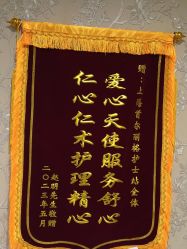 赠：上蔡首尔丽格护士站全体
爱心天使服务舒心
仁心仁术护理精心
赵明先生敬赠
二〇二三年五月